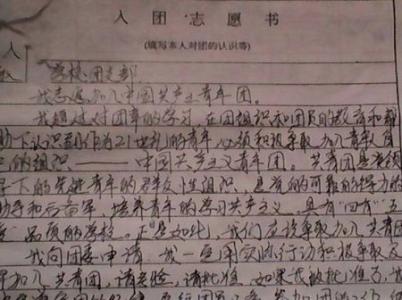 入团志愿书
(填写本人对团的认识等)
入
学校团支部
我志愿加入中国共产主义青年团。
我通过对团章的学习,在团组织和团员的教育和帮
助下认识到作为21世纪的青年心须积极争取加入青年自
己的组织——中国共产主义青年团。共青团是党领
导下的先进青年的群众性组织,是党的可靠的得力的
助手和后备军,培养青年的学习共产主义,具有"四有""五
品质的学校。正是如此,我们应该争取加入共青团
我向团委申请,我一定用实际行动积极争取及
早加入共青团,请考验,请批准。如果我被批准了,我